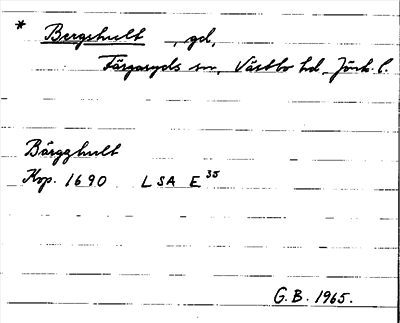 * Bergshult , gd,
Färgaryds sn, Västbo hd, Jönk. l.
Bärgghult
Kop. 1690 LSA E 35
G.B. 1965.